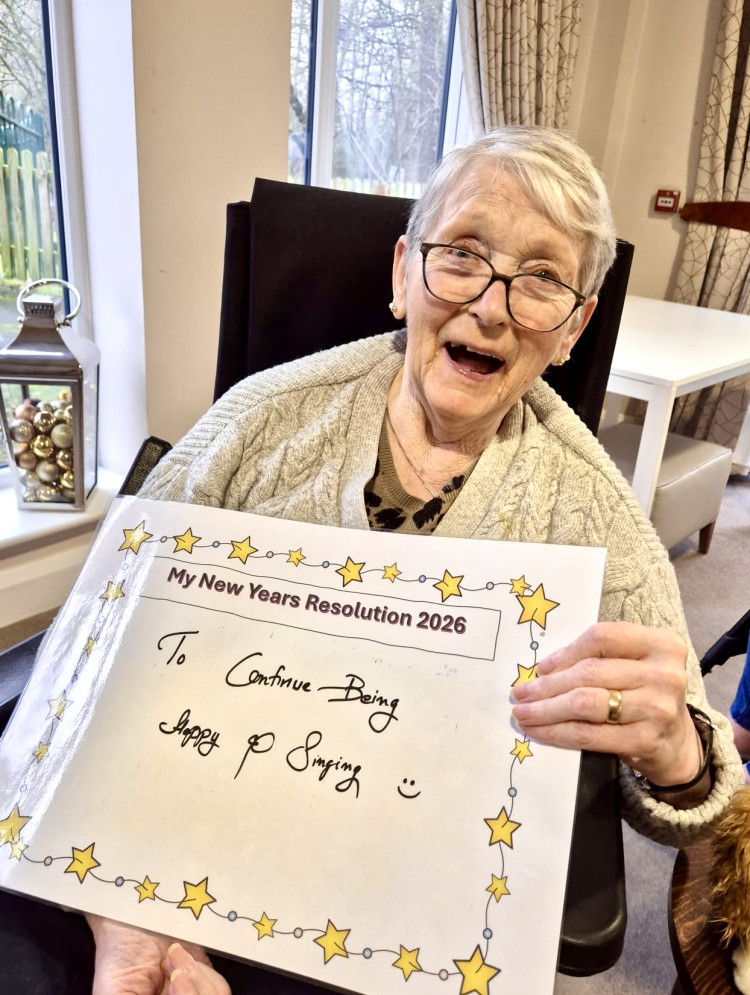 My New Years Resolution 2026
To Continue Being
Happy & Singing :)